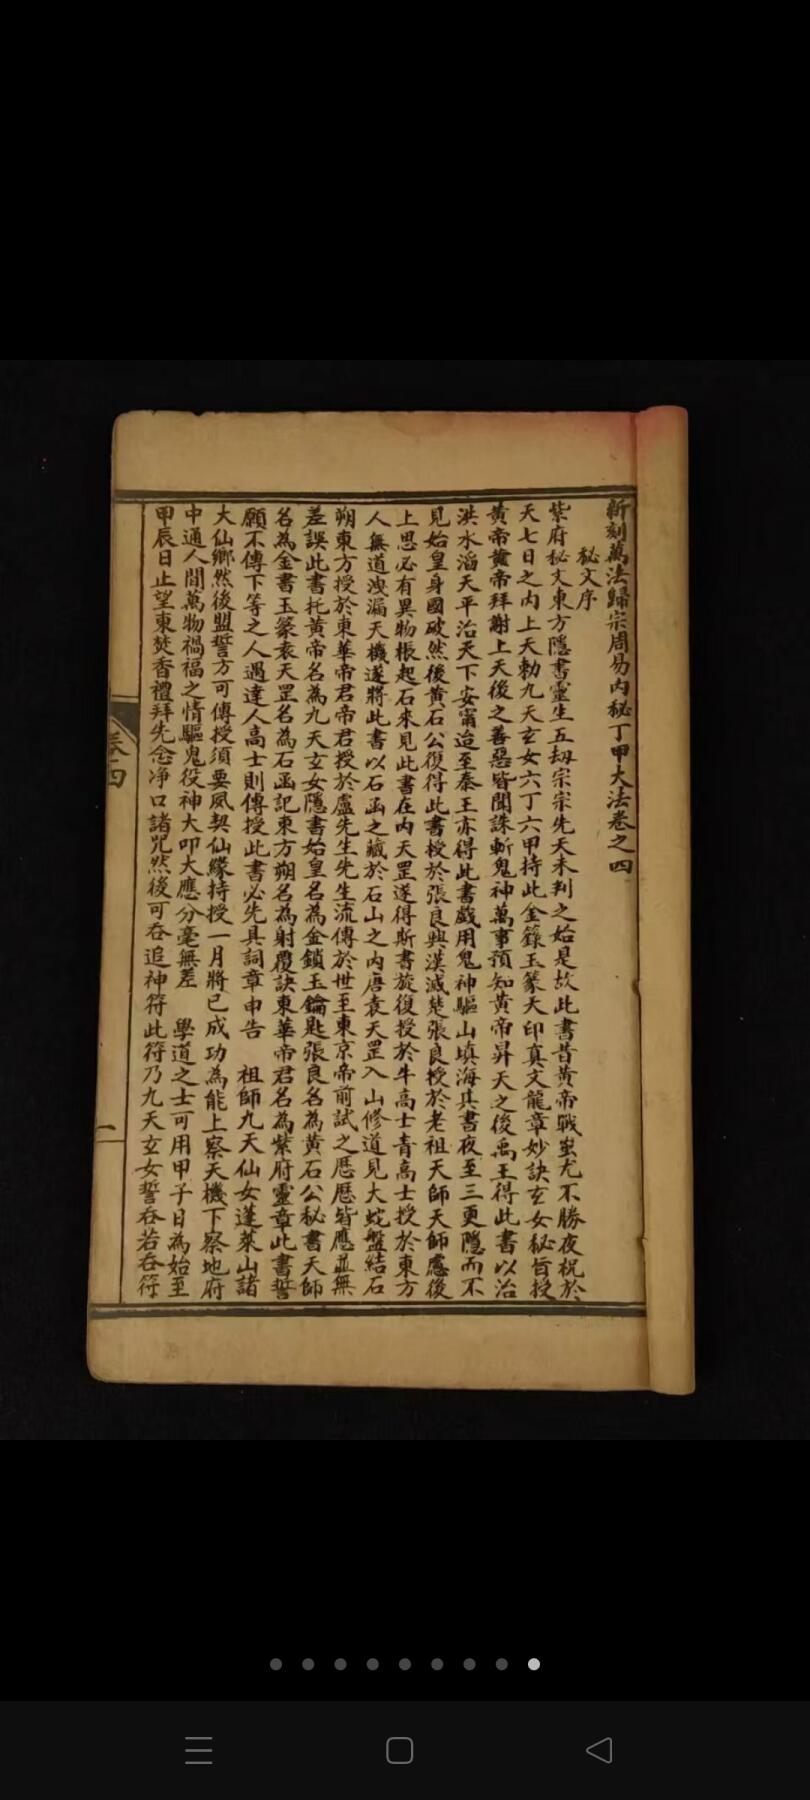 新刻萬法歸宗周易内秘丁甲大法卷之四
秘文序
紫府秘文東方隱書靈生五刼宗宗先天未判之始是故此書昔黄帝戰蚩尤不勝夜祝於
天七日之内上天勅九天玄女六丁六甲持此金籙玉篆天印真文龍章妙訣玄女秘旨授
黄帝黄帝拜謝上天後之善惡皆聞誅斬鬼神萬事預知黄帝昇天之後禹王得此書以治
洪水滔天平治天下安甯迨至秦王亦得此書戲用鬼神驅山填海其書夜至三更隱而不
見始皇身國破然後黄石公復得此書授於張良興漢滅楚張良授於老祖天師天師慮後
人無道洩漏天機遂將此書以石函之藏於石山之内唐袁天罡入山修道見大蛇盤結石
上思必有異物棖起石來見此書在内天罡遂得斯書旋復授於牛高士青高士授於東方
朔東方授於東華帝君帝君授於盧先生先生流傳於世至東京帝前試之歷歷皆應並無
差誤此書托黄帝名為九天玄女隱書始皇名為金鎖玉鑰匙張良名為黄石公秘書天師
名為金書玉篆袁天罡名為石函記東方朔名為射覆訣東華帝君名為紫府靈章此書誓
願不傳下等之人遇達人高士則傳授此書必先具詞章申告　祖師九天仙女蓬萊山諸
大仙鄉然後盟誓方可傳授須要夙契仙緣持授一月將已成功為能上察天機下察地府
中通人間萬物禍福之情驅鬼役神大叩大應分毫無差　學道之士可用甲子日為始至
甲辰日止望東焚香禮拜先念净口諸咒然後可吞追神符此符乃九天玄女誓吞若吞符
卷四
一